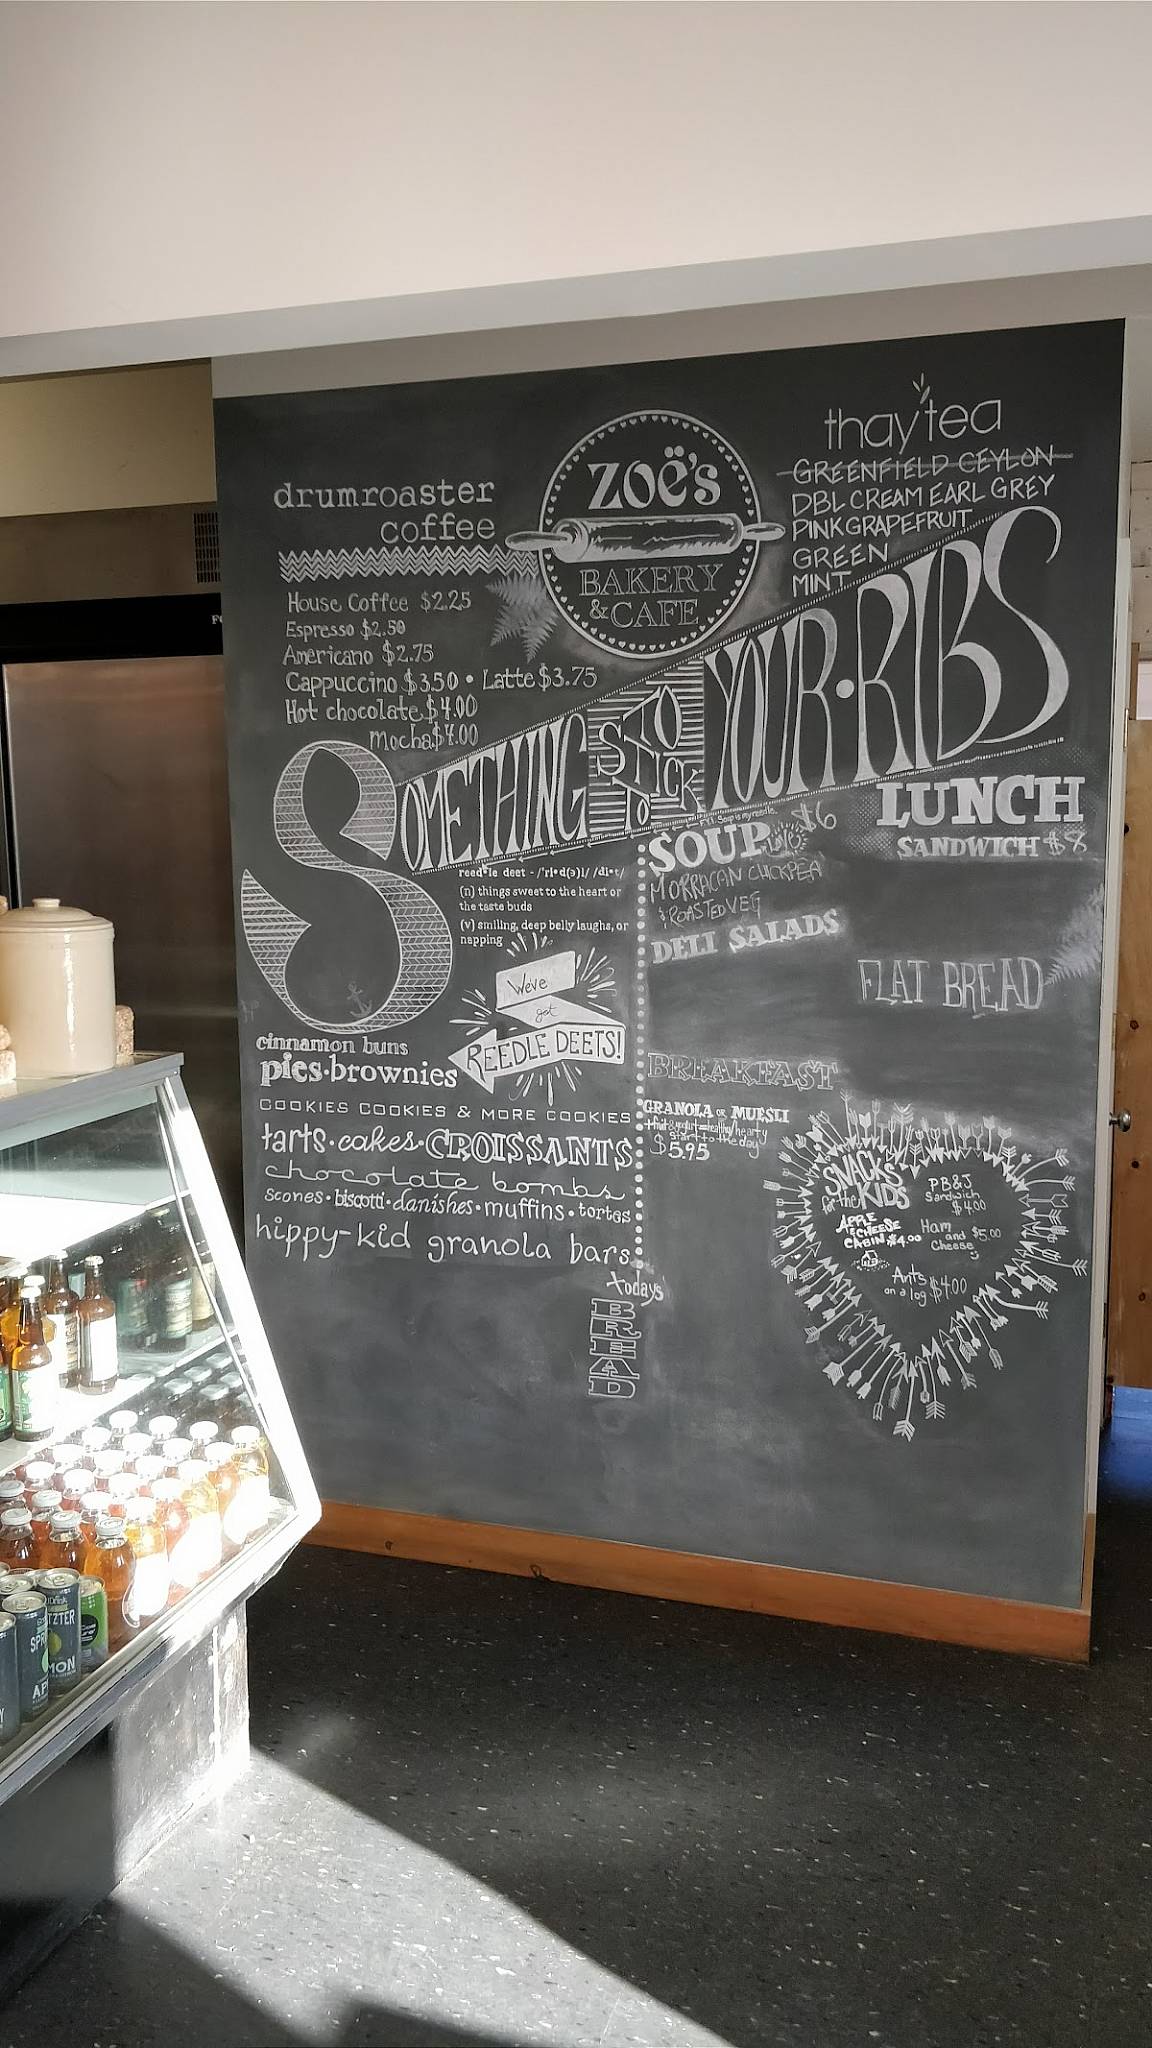 drumroaster
coffee
House Coffee $2.25
Espresso $2.50
Americano $2.75
Cappuccino $3.50 • Latte $3.75
Hot chocolate $4.00
Mocha $4.00
ZOË'S
BAKERY
& CAFE
thay tea
GREENFIELD CEYLON
DBL CREAM EARL GREY
PINK GRAPEFRUIT
GREEN
MINT
SOMETHING TO STICK TO YOUR • RIBS
reed•le deet - /'rēd(ə)l/ /di•t/
(n) things sweet to the heart or
the taste buds
(v) smiling, deep belly laughs, or
napping
We've
got
REEDLE DEETS!
cinnamon buns
pies • brownies
COOKIES COOKIES & MORE COOKIES
tarts • cakes • CROISSANTS
chocolate bombs
scones • biscotti • danishes • muffins • tortes
hippy-kid granola bars
today's
BREAD
FYI: Soup is my reedle.
SOUP $6
MORRACAN CHICKPEA
& ROASTED VEG
DELI SALADS
BREAKFAST
GRANOLA OR MUESLI
+ fruit & yogurt = healthy/hearty
start to the day
$5.95
LUNCH
SANDWICH $8
FLAT BREAD
SNACKS
for the KIDS
APPLE
& CHEESE
CABIN $4.00
PB&J
Sandwich
$4.00
Ham
and
Cheese $5.00
Ants
on a log $4.00